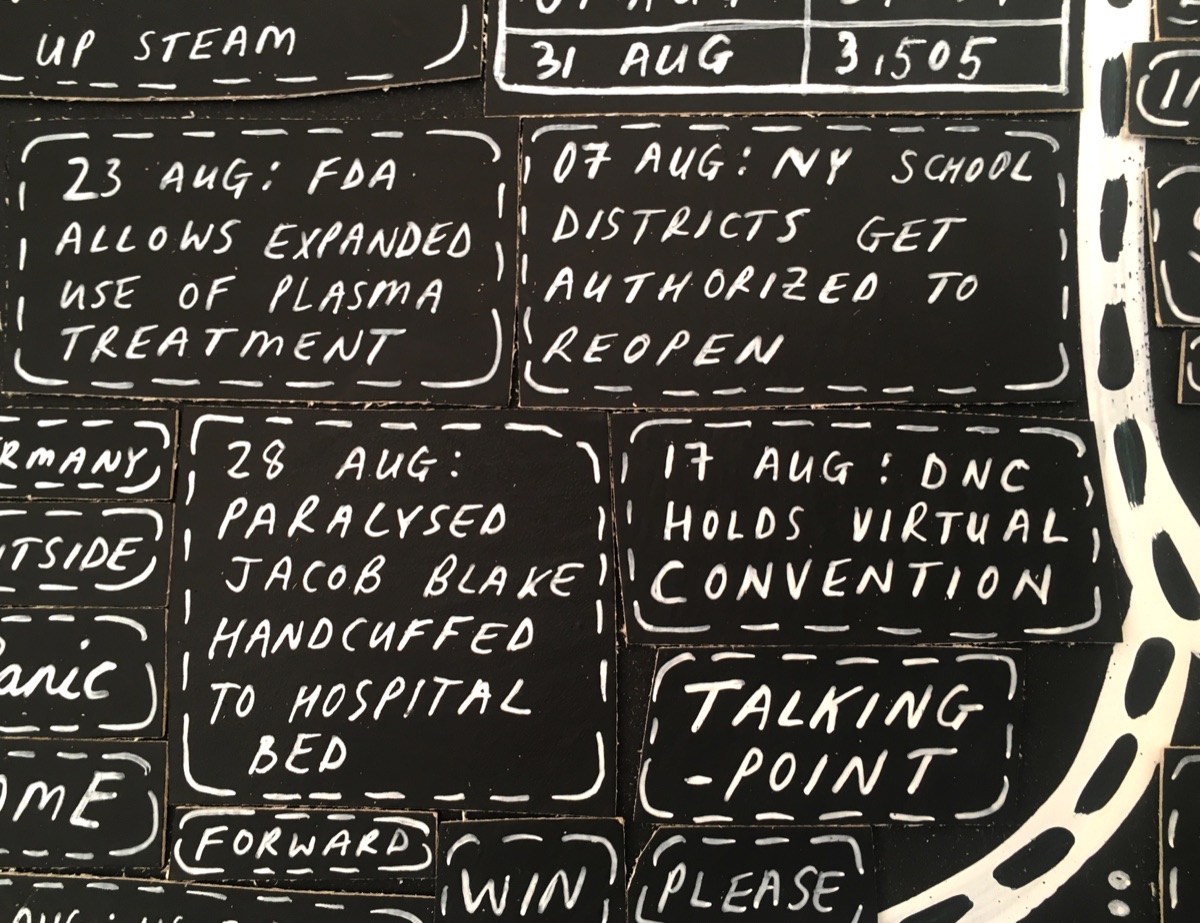 UP STEAM
31 AUG 3,505
23 AUG: FDA
ALLOWS EXPANDED
USE OF PLASMA
TREATMENT
07 AUG: NY SCHOOL
DISTRICTS GET
AUTHORIZED TO
REOPEN
28 AUG:
PARALYSED
JACOB BLAKE
HANDCUFFED
TO HOSPITAL
BED
17 AUG: DNC
HOLDS VIRTUAL
CONVENTION
TALKING
-POINT
FORWARD
WIN
PLEASE